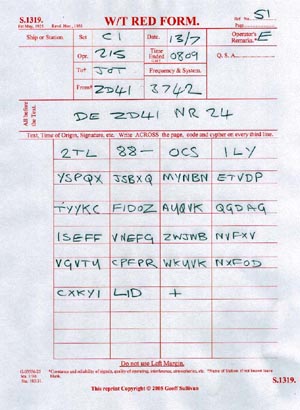 S.1319. W/T RED FORM. Ref No. 51
Ship or Station. Set C1 Date. 13/7 Operator's Remarks. E
Opr. 215 Time Ended 0809 Q. S. A.
To* JOT Frequency & System.
From* ZD41 3742
All before the Text.
DE ZD41 NR 24
Text, Time of Origin, Signature, etc. Write ACROSS the page, code and cypher on every third line.
2TL 88- OCS 1LY
YSPQX JSBXQ MYNBN ETVDP
TYYKC FIDOZ AUQVK QGDAG
ISEFF VNEFG ZWJWB NVFXV
VGVTY CPFPR WKUVK NXFOD
CXKYI LID +
Do not use Left Margin.
S.1319.
This reprint Copyright © 2008 Geoff Sullivan